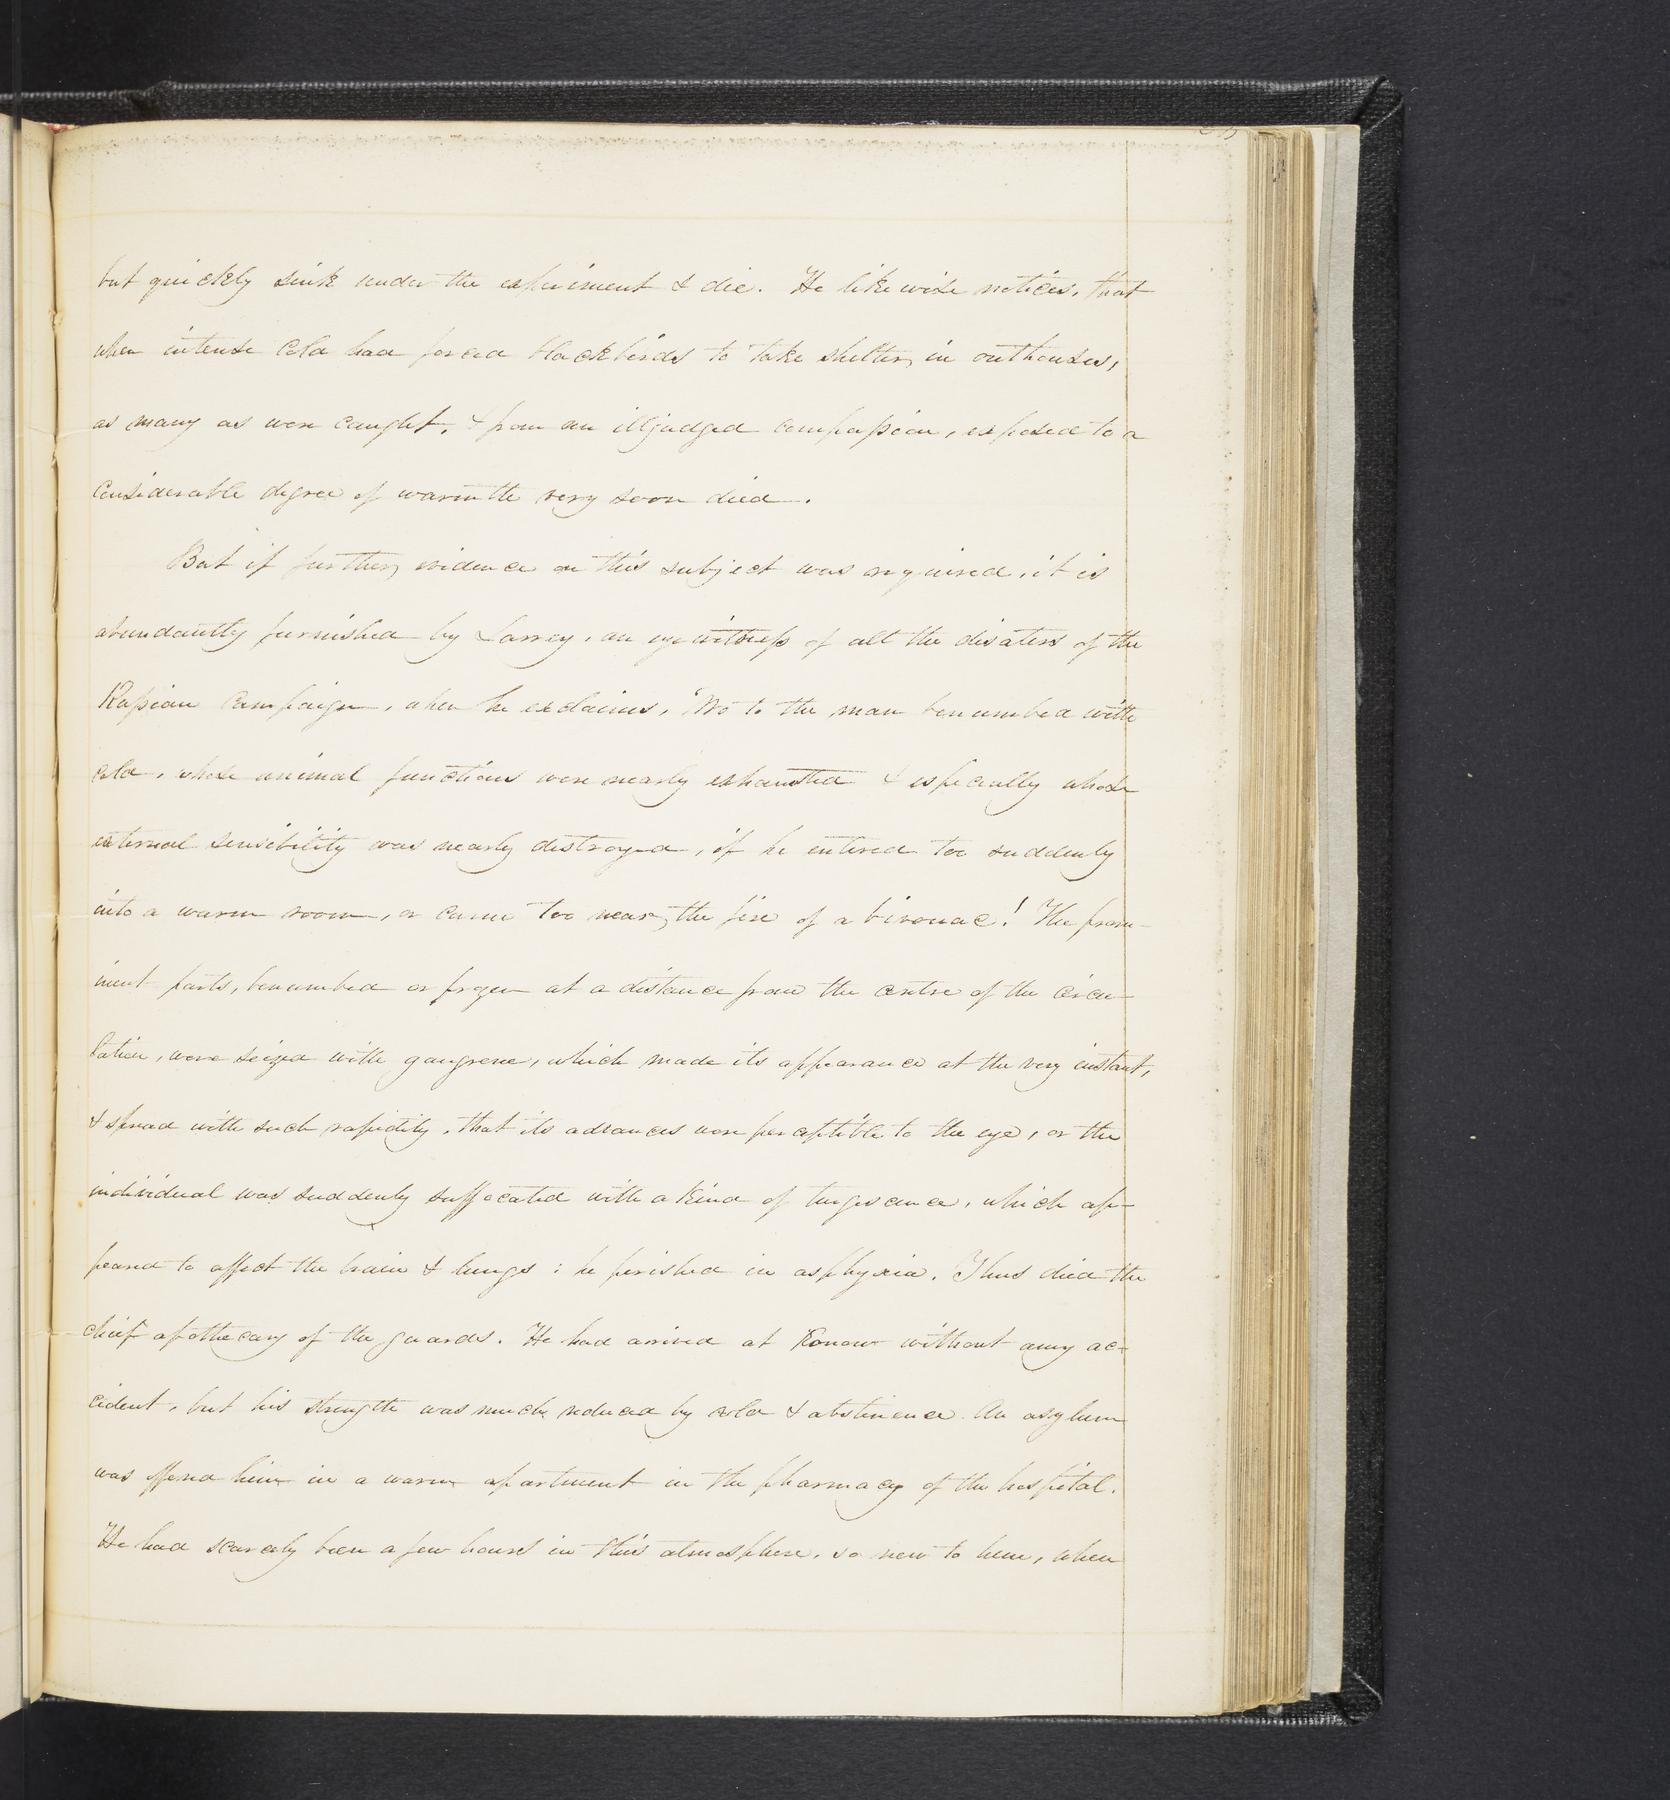 but quickly sink under the experiment & die. He likewise notices, that
when intense cold had forced blackbirds to take shelter, in outhouses,
as many as were caught, & from an illjudged compassion, exposed to a
considerable degree of warmth very soon died.
But if further, evidence on this subject was required, it is
abundantly furnished by Larrey, an eyewitness of all the disaters of the
Russian Campaign, when he exclaims, "Wo to the man benumbed with
cold, whose animal functions were nearly exhausted & especially whose
external sensibility was nearly destroyed, if he entered too suddenly
into a warm room, or came too near, the fire of a bivouac! The prom-
inent parts, benumbed or frozen at a distance from the centre of the circu-
lation, were seized with gangrene, which made its appearance at the very instant,
& spread with such rapidity, that its advances were perceptible to the eye, or the
individual was suddenly suffocated with a kind of turgescence, which ap-
peared to affect the brain & lungs: he perished in asphyxia. Thus died the
chief apothecary of the guards. He had arrived at Konow without any ac-
cident, but his strength was much reduced by cold & abstinence. An asylum
was offered him in a warm apartment in the pharmacy of the hospital.
He had scarcely been a few hours in this atmosphere, so new to him, when